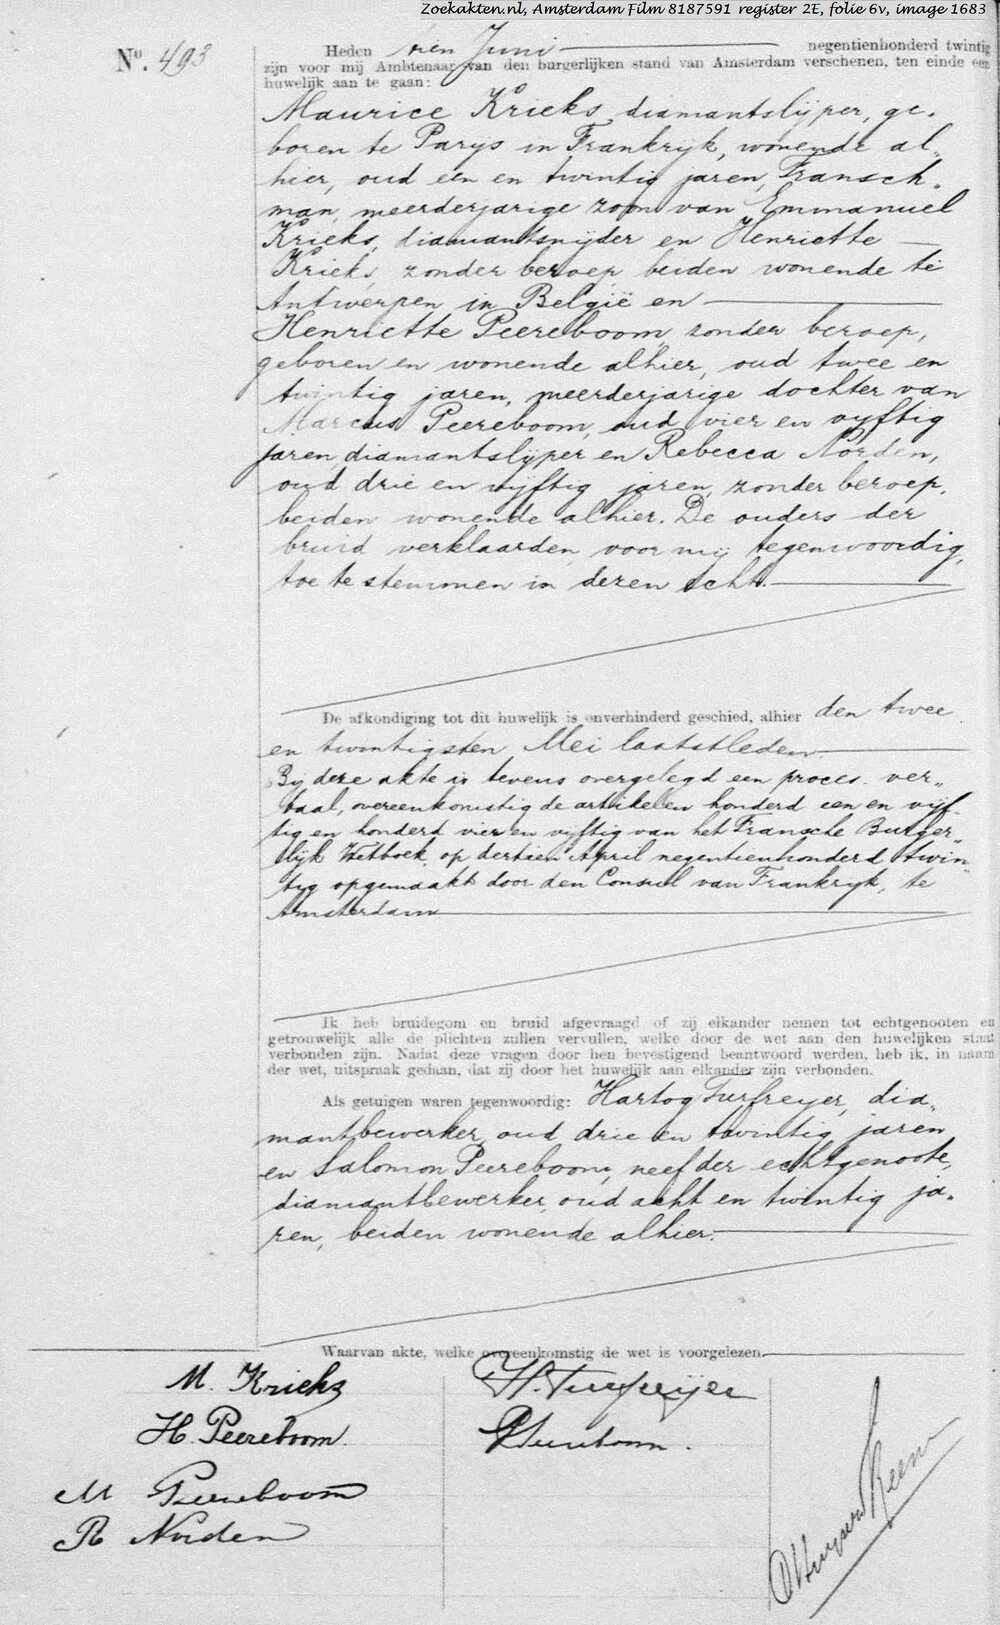 Zoekakten.nl, Amsterdam Film 8187591 register 2E, folie 6v, image 1683
No. 493
Heden tien Juni negentienhonderd twintig
zijn voor mij Ambtenaar van den burgerlijken stand van Amsterdam verschenen, ten einde een
huwelijk aan te gaan:
Maurice Krieks, diamantslijper, ge-
boren te Parys in Frankryk, wonende al-
hier, oud een en twintig jaren, Fransch-
man, meerderjarige zoon van Emmanuel
Krieks, diamantsnijder en Henriette
Krieks, zonder beroep, beiden wonende te
Antwerpen in België en
Henriette Peereboom, zonder beroep,
geboren en wonende alhier, oud twee en
twintig jaren, meerderjarige dochter van
Marcus Peereboom, oud vier en vyftig
jaren, diamantslyper en Rebecca Norden,
oud drie en vyftig jaren, zonder beroep,
beiden wonende alhier. De ouders der
bruid verklaarden voor mij tegenwoordig,
toe te stemmen in dezen echt.
De afkondiging tot dit huwelijk is onverhinderd geschied, alhier den twee
en twintigsten Mei laatstleden
By deze akte is tevens overgelegd een proces-ver-
baal, overeenkomstig de artikelen honderd een en vyf-
tig en honderd vier en vyftig van het Fransche Burger-
lijk Wetboek, op dertien April negentienhonderd twin-
tig opgemaakt door den Consul van Frankryk, te
Amsterdam
Ik heb bruidegom en bruid afgevraagd of zij elkander nemen tot echtgenooten en
getrouwelijk alle de plichten zullen vervullen, welke door de wet aan den huwelijken staat
verbonden zijn. Nadat deze vragen door hen bevestigend beantwoord werden, heb ik, in naam
der wet, uitspraak gedaan, dat zij door het huwelijk aan elkander zijn verbonden.
Als getuigen waren tegenwoordig: Hartog Turfreyer, dia-
mantbewerker, oud drie en twintig jaren
en Salomon Peereboom, neef der echtgenoote,
diamantbewerker, oud acht en twintig ja-
ren, beiden wonende alhier.
Waarvan akte, welke overeenkomstig de wet is voorgelezen.
M. Krieks
H. Turfreijer
H. Peereboom.
Peereboom.
M Peereboom
R Norden